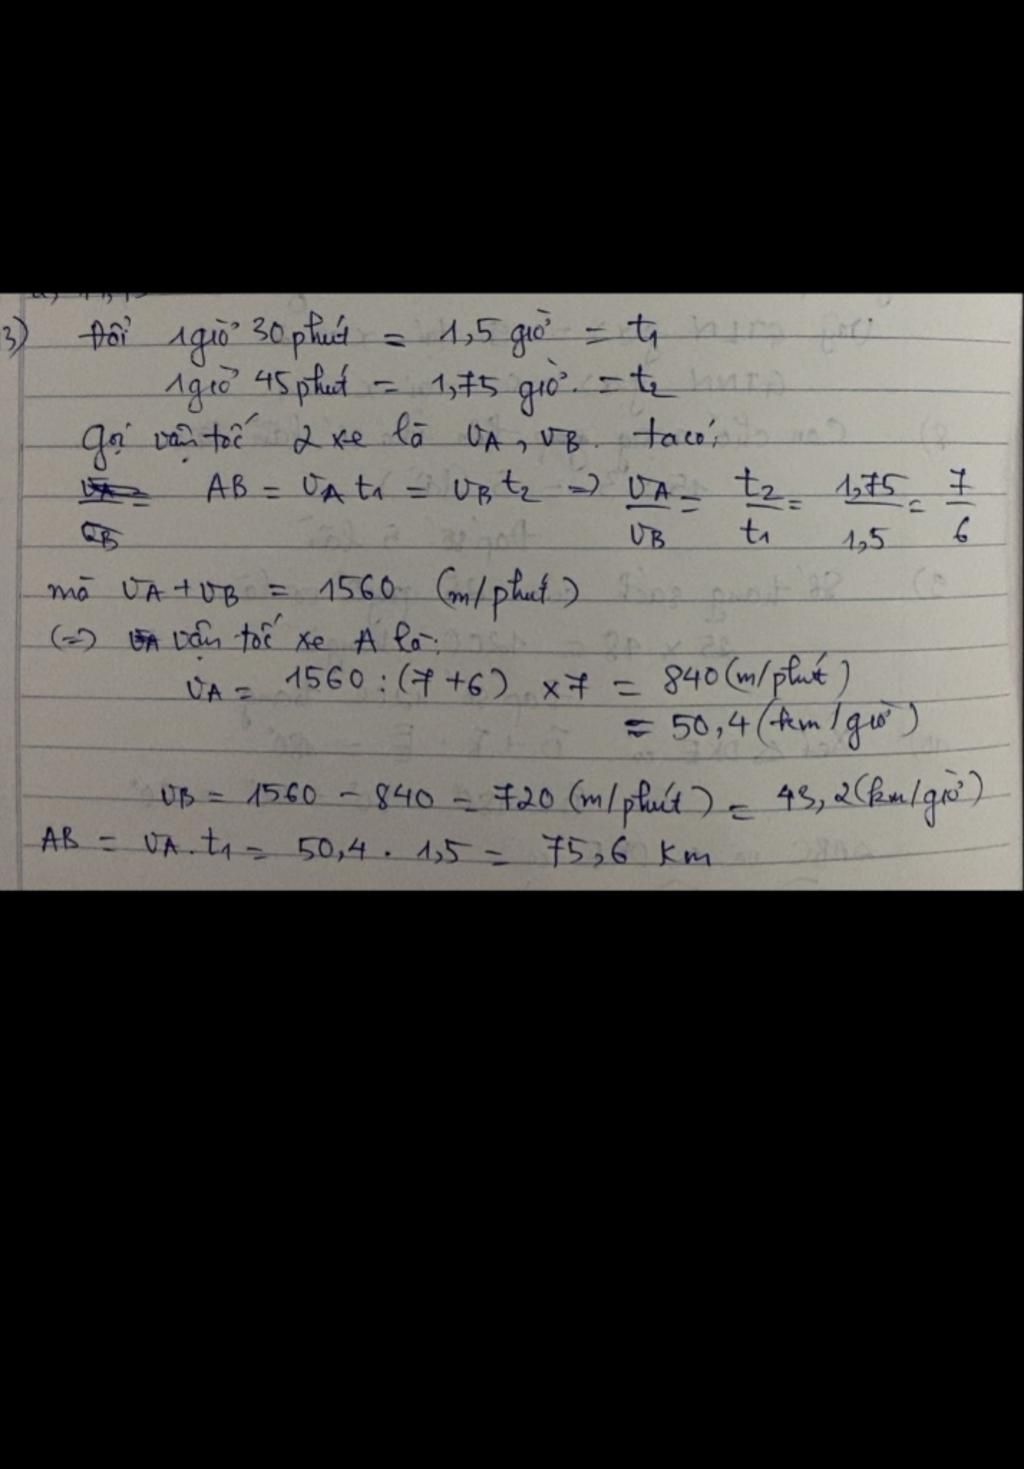 3) Đổi 1giờ 30phút = 1,5 giờ = t1
1giờ 45phút = 1,75 giờ. = t2
Gọi vận tốc 2 xe là vA, vB. ta có:
AB = vA t1 = vB t2 => vA/vB = t2/t1 = 1,75/1,5 = 7/6
mà vA + vB = 1560 (m/phút)
(=) vận tốc xe A là:
vA = 1560 : (7+6) x7 = 840 (m/phút)
= 50,4 (km/giờ)
vB = 1560 - 840 = 720 (m/phút) = 43,2 (km/giờ)
AB = vA.t1 = 50,4 . 1,5 = 75,6 km